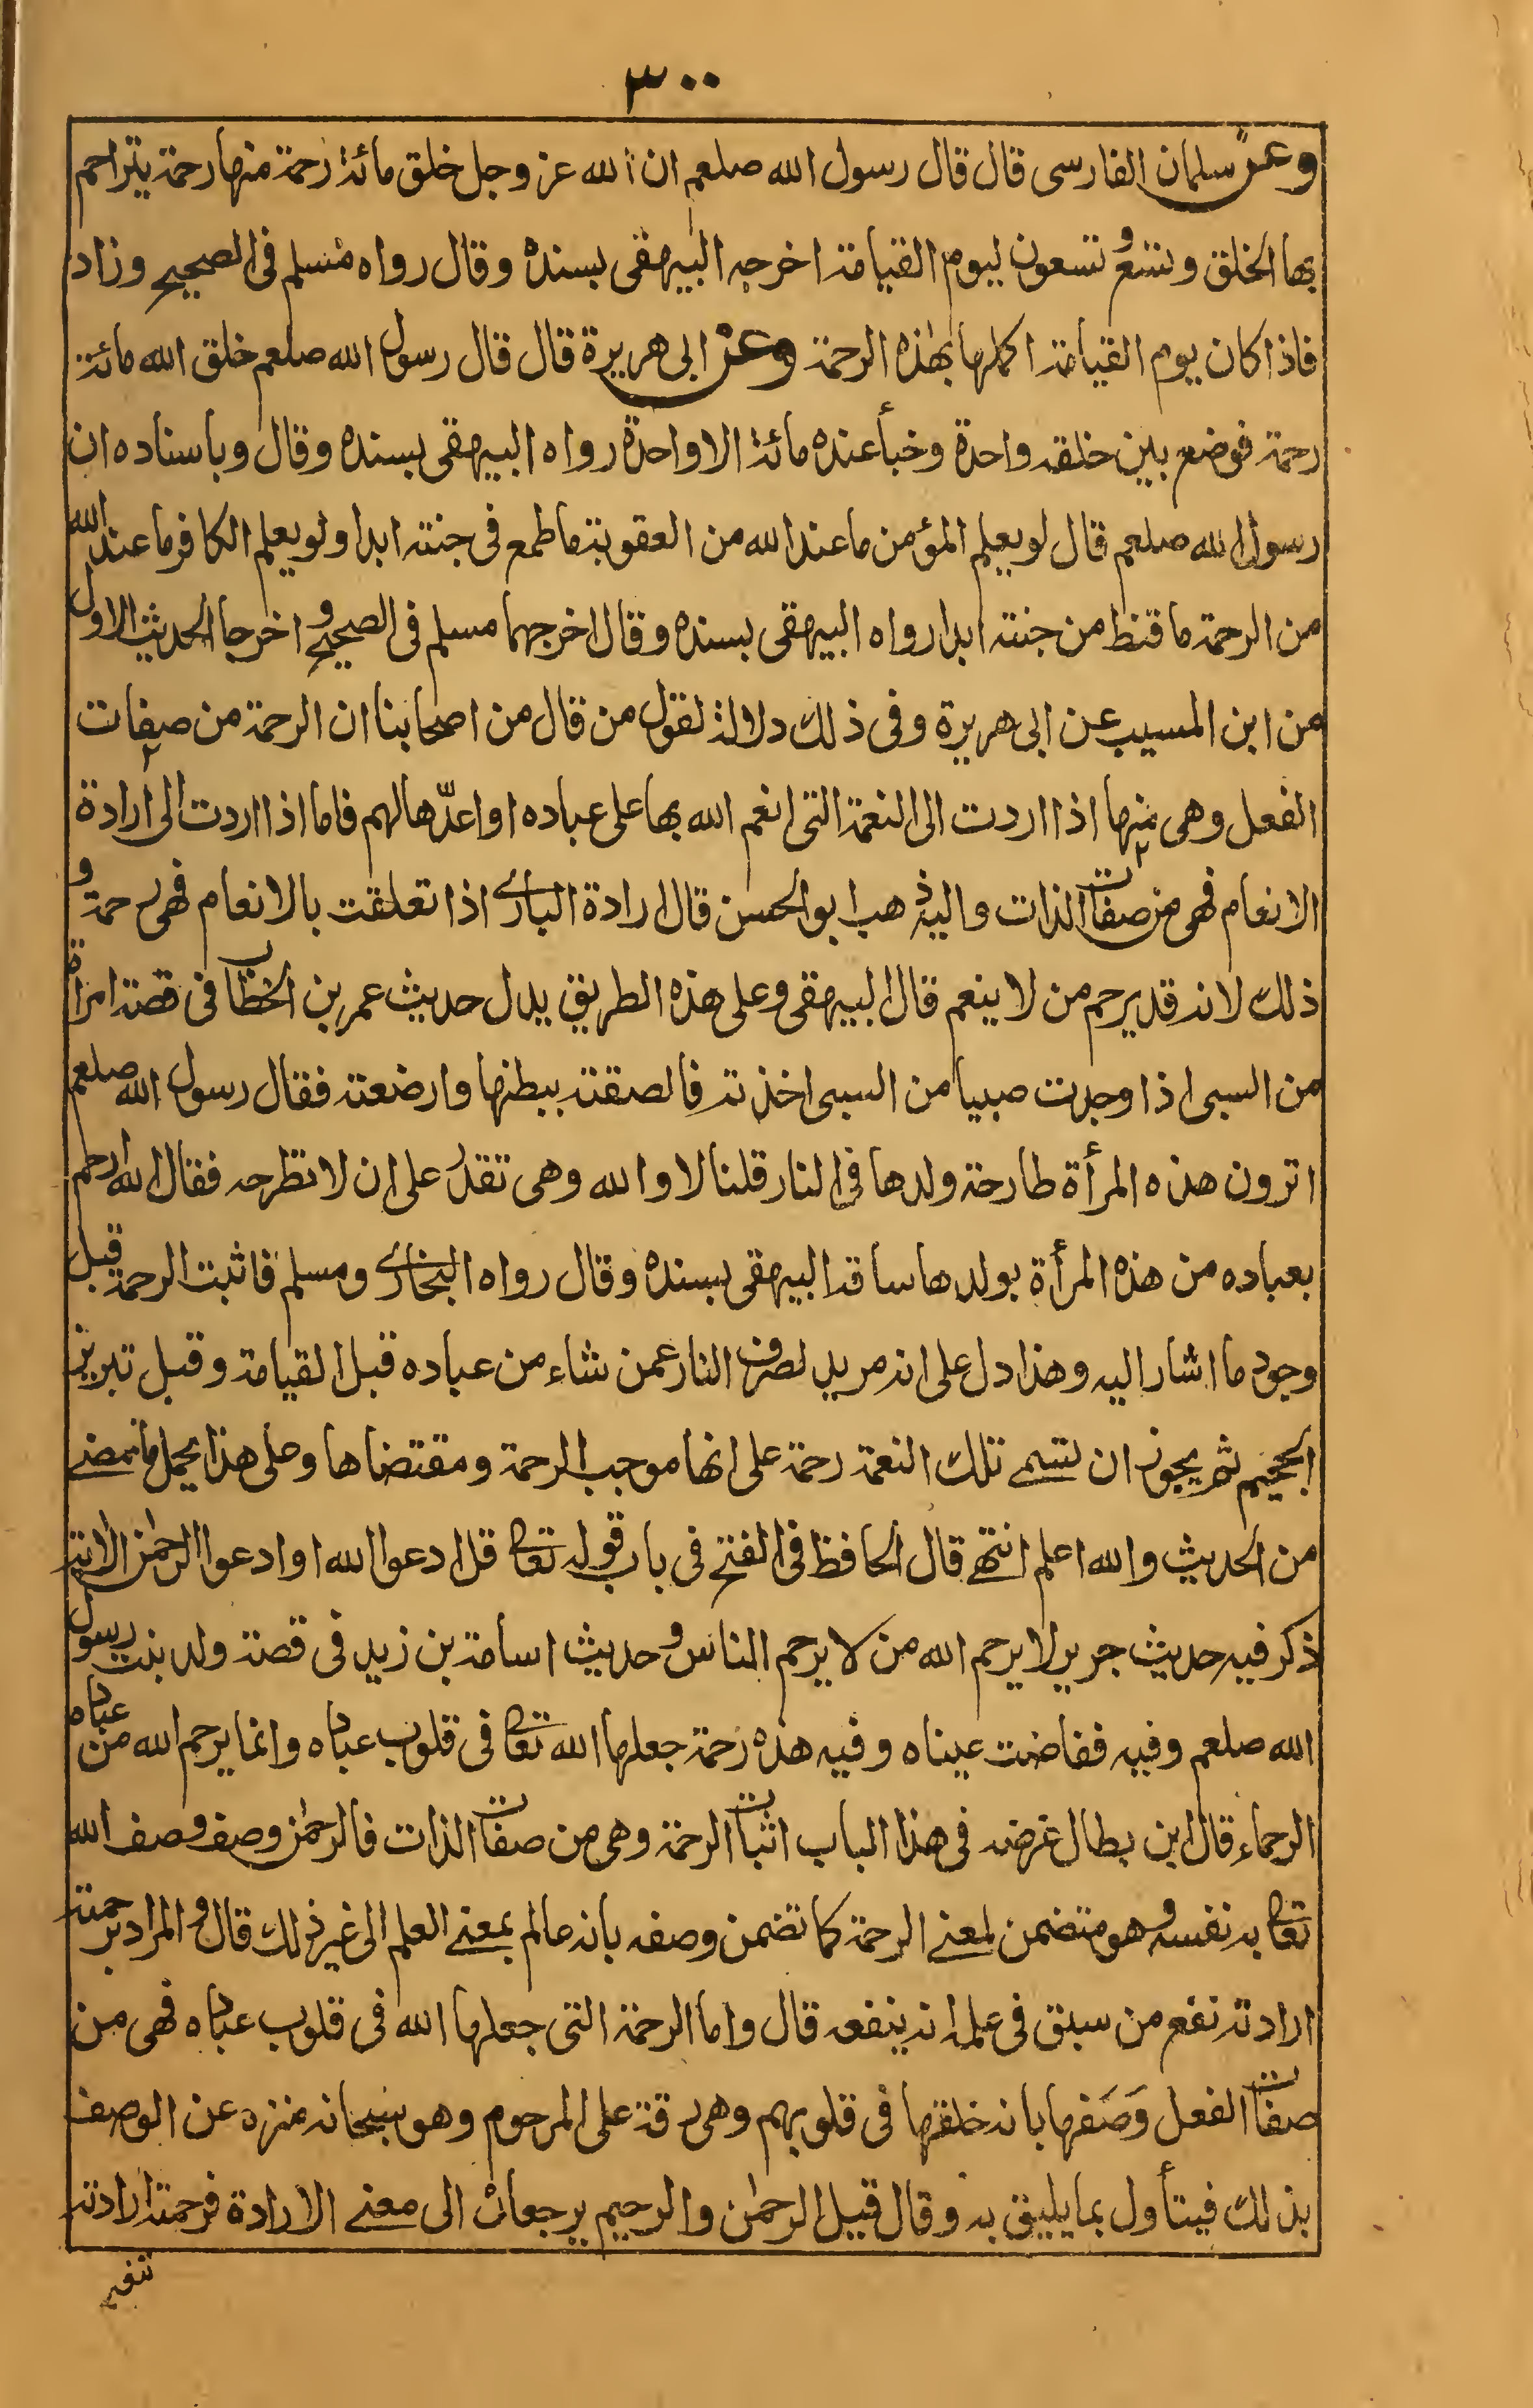 ٣٠٠
وعن سلمان الفارسى قال قال رسول الله صلعم ان الله عز وجل خلق مائة رحمة منها رحمة يتراحم
بها الخلق وتسع وتسعون ليوم القيامة اخرجه البيهقى بسنده وقال رواه مسلم فى الصحيح وزاد
فاذا كان يوم القيامة اكملها بهذه الرحمة وعن ابى هريرة قال قال رسول الله صلعم خلق الله مائة
رحمة فوضع بين خلقه واحدة وخبأ عنده مائة الا واحدة رواه البيهقى بسنده وقال وباسناده ان
رسول الله صلعم قال لو يعلم المؤمن ما عند الله من العقوبة ما طمع فى جنته ابدا ولو يعلم الكافر ما عند الله
من الرحمة ما قنط من جنته ابدا رواه البيهقى بسنده وقال اخرجهما مسلم فى الصحيح و اخرجا الحديث الاول
من ابن المسيب عن ابى هريرة وفى ذلك دلالة لقول من قال من اصحابنا ان الرحمة من صفات
الفعل وهى منها اذا اردت الى النعمة التى انعم الله بها على عباده او اعدّها لهم فاما اذا اردت الى ارادة
الانعام فهى من صفات الذات واليه ذهب ابو الحسن قال ارادة البارے اذا تعلقت بالانعام فهى رحمة و
ذلك لانه قد يرحم من لا ينعم قال البيهقى وعلى هذه الطريق يدل حديث عمر بن الخطاب فى قصة امرأة
من السبى اذا وجدت صبيا من السبى اخذته فالصقته ببطنها وارضعته فقال رسول الله صلعم
اترون هذه المرأة طارحة ولدها فى النار قلنا لا والله وهى تقدر على ان لا تطرحه فقال الله ارحم
بعباده من هذه المرأة بولدها ساقه البيهقى بسنده وقال رواه البخارے ومسلم فاثبت الرحمة قبل
وجود ما اشار اليه وهذا دل على انه مريد لصرف النار عمن شاء من عباده قبل القيامة وقبل تبريز
الجحيم ثم يجوز ان تسمے تلك النعمة رحمة على انها موجب الرحمة ومقتضاها وعلى هذا يحمل ما مضے
من الحديث والله اعلم انتهے قال الحافظ فى الفتح فى باب قوله تعالى قل ادعوا الله او ادعوا الرحمٰن الاية
ذكر فيه حديث جرير لا يرحم الله من لا يرحم الناس و حديث اسامة بن زيد فى قصة ولد بنت رسول
الله صلعم وفيه ففاضت عيناه وفيه هذه رحمة جعلها الله تعالى فى قلوب عباده وانما يرحم الله من عباده
الرحماء قال ابن بطال غرضه فى هذا الباب اثبات الرحمة وهى من صفات الذات فالرحمٰن وصف وصف الله
تعالى به نفسه و هو متضمن لمعنے الرحمة كما تضمن وصفه بانه عالم بمعنے العلم الى غير ذلك قال و المراد برحمته
ارادته نفع من سبق فى علمه انه ينفعه قال واما الرحمة التى جعلها الله فى قلوب عباده فهى من
صفات الفعل وَصَفها بانه خلقها فى قلوبهم وهى رقة على المرحوم وهو سبحانه منزه عن الوصف
بذلك فيتأول بما يليق به وقال قيل الرحمٰن والرحيم يرجعان الى معنے الارادة فرحمته ارادته